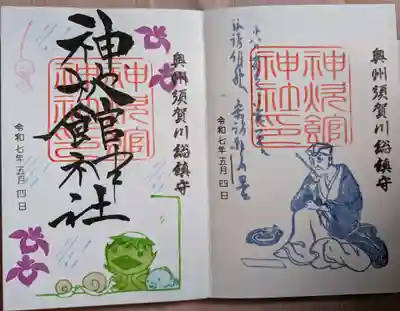 奥州須賀川総鎮守
神炊館
神社印
神炊館神社
令和七年五月四日
奥州須賀川総鎮守
神炊館
神社印
令和七年五月四日